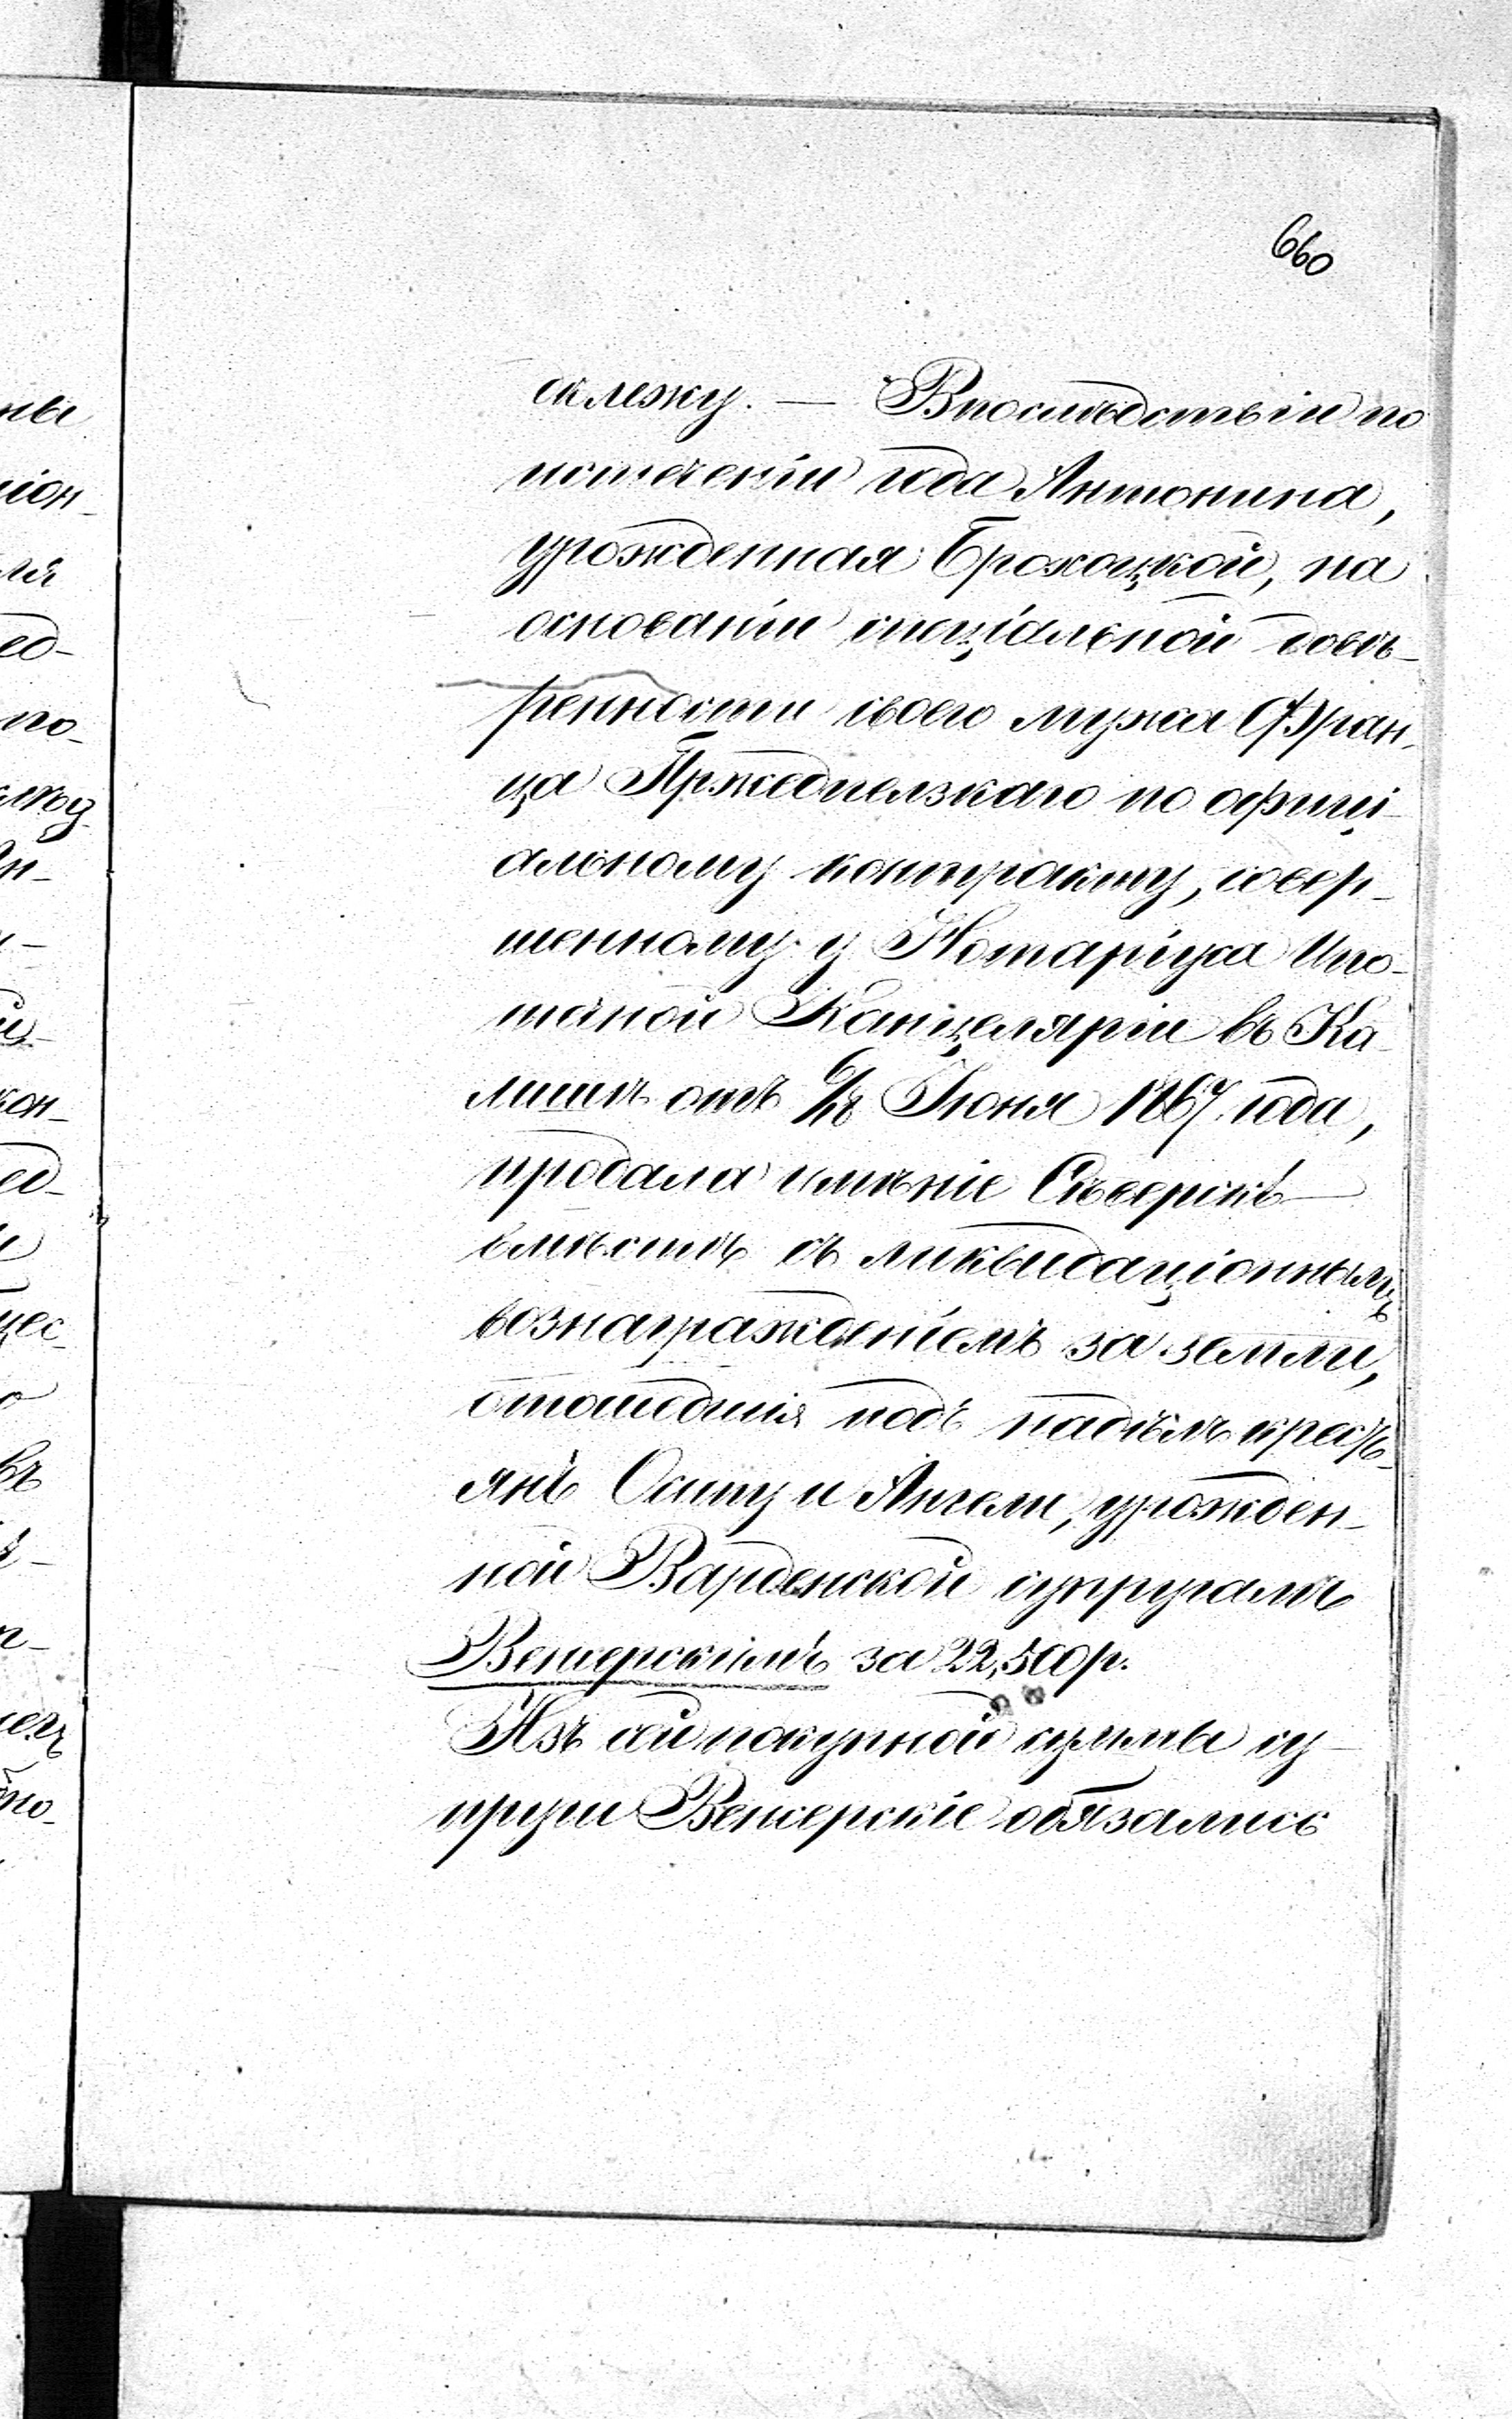 660
склежу. — Впослѣдствіи по
истеченіи года Антонина,
урожденная Брохоцкой, на
основаніи спеціальной довѣ-
ренности своего мужа Фран-
ца Пржедпелзкаго по офиці-
альному контракту, совер-
шенному у Нотаріуса Ипо-
течной Канцеляріи въ Ка-
лишѣ отъ 6/18 Іюня 1867 года,
продала имѣніе Сѣверскъ
вмѣстѣ съ ликвидаціоннымъ
вознагражденіемъ за земли,
отошедшія подъ надѣлъ кресть-
янъ Осипу и Ангели, урожден-
ной Варденской супругамъ
Венжерскимъ за 22,500 р.
Изъ сей покупной суммы су-
пруги Венжерскіе обязались